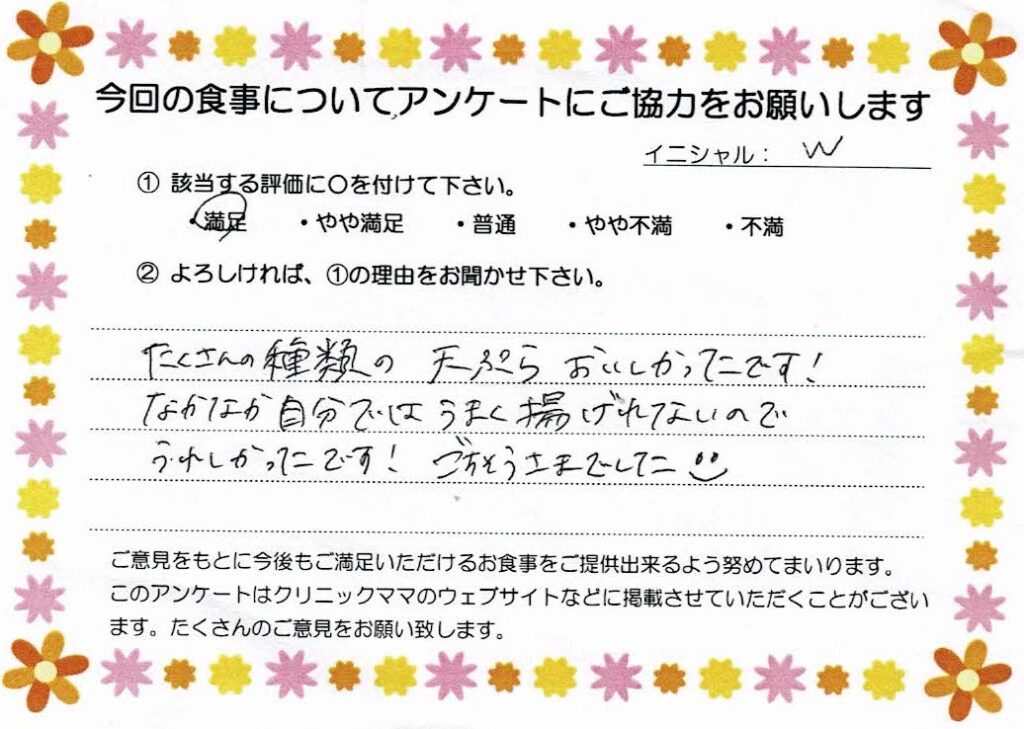 今回の食事についてアンケートにご協力をお願いします
イニシャル： W
① 該当する評価に〇を付けて下さい。
・満足 ・やや満足 ・普通 ・やや不満 ・不満
② よろしければ、①の理由をお聞かせ下さい。
たくさんの種類の 天ぷら おいしかったです！
なかなか自分ではうまく揚げれてないので
うれしかったです！ ごちそうさまでした
ご意見をもとに今後もご満足いただけるお食事をご提供出来るよう努めてまいります。
このアンケートはクリニックママのウェブサイトなどに掲載させていただくことがござい
ます。たくさんのご意見をお願い致します。